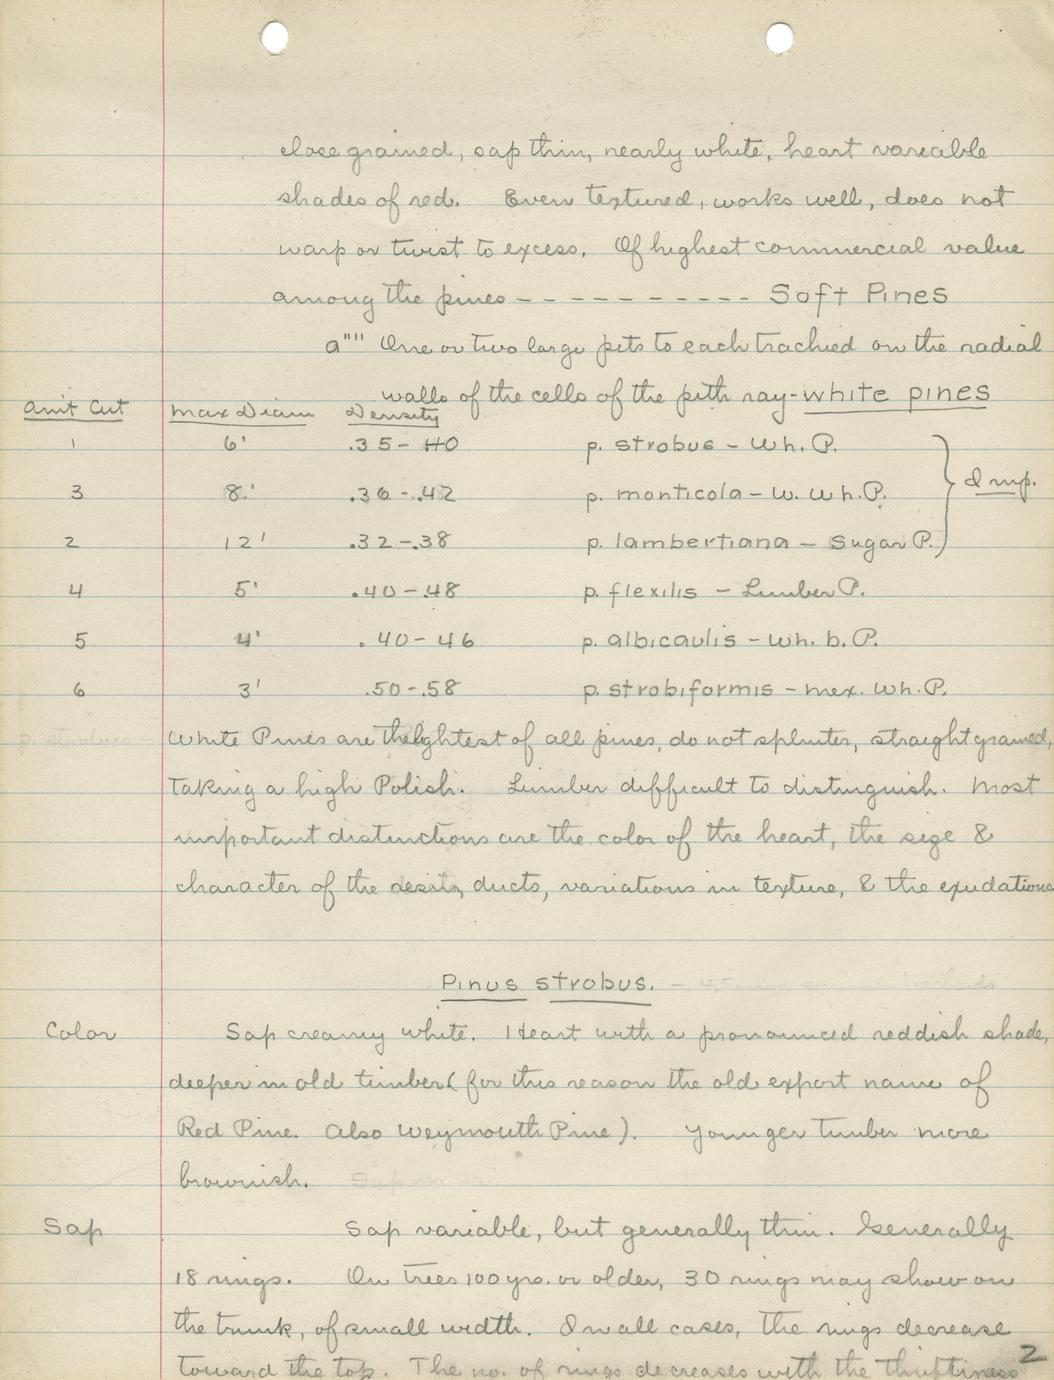 close grained, sap thin, nearly white, heart variable
shades of red. Even textured, works well, does not
warp or twist to excess. Of highest commercial value
among the pines - - - - - - - - - - Soft Pines
a"" One or two large pits to each trachied on the radial
walls of the cells of the pith ray - white pines
Am't Cut Max Diam Density
1 6' .35 - 40 p. strobus - Wh. P.
3 8' .36 - .42 p. monticola - W. Wh. P. Imp.
2 12' .32 - .38 p. lambertiana - Sugar P.
4 5' .40 - .48 p. flexilis - Limber P.
5 4' .40 - 46 p. albicaulis - Wh. b. P.
6 3' .50 - .58 p. strobiformis - Mex. Wh. P.
White Pines are the lightest of all pines, do not splinter, straight grained,
taking a high Polish. Lumber difficult to distinguish. Most
important distinctions are the color of the heart, the size &
character of the ducts, variations in texture, & the exudations
Pinus strobus. -
Color Sap creamy white. Heart with a pronounced reddish shade,
deeper in old timber (for this reason the old export name of
Red Pine. Also Weymouth Pine). Younger timber more
brownish.
Sap Sap variable, but generally thin. Generally
18 rings. On trees 100 yrs. or older, 30 rings may show on
the trunk, of small width. In all cases, the rings decrease
toward the top. The no. of rings decreases with the thriftiness
2